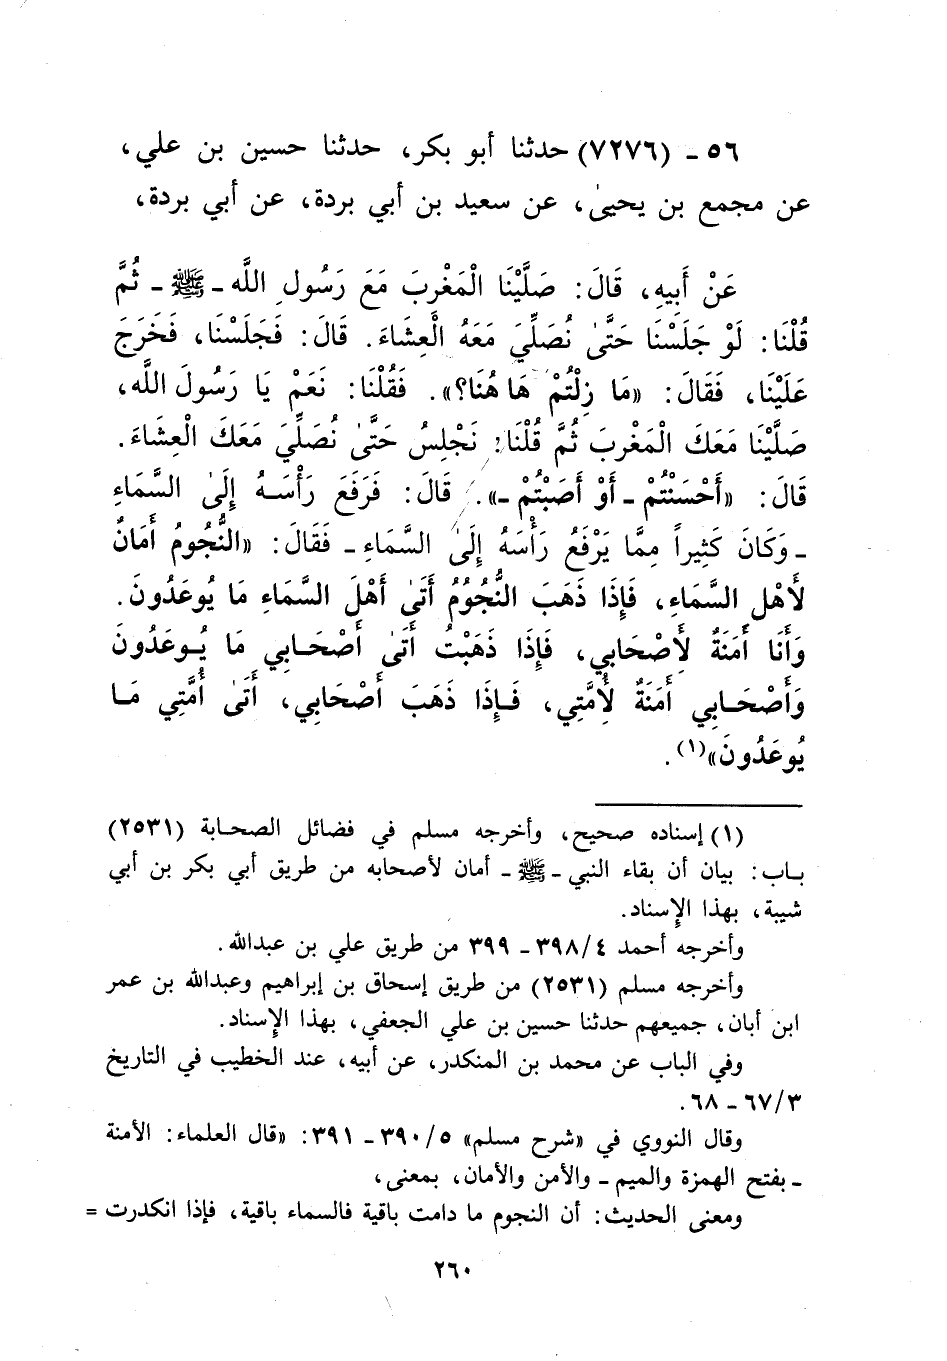 ٥٦ ـ (٧٢٧٦) حدثنا أبو بكر، حدثنا حسين بن علي،
عن مجمع بن يحيىٰ، عن سعيد بن أبي بردة، عن أبي بردة،
عَنْ أَبِيهِ، قَالَ: صَلَّيْنَا الْمَغْرِبَ مَعَ رَسُولِ اللَّه ـ ﷺ ـ ثُمَّ
قُلْنَا: لَوْ جَلَسْنَا حَتَّىٰ نُصَلِّيَ مَعَهُ الْعِشَاءَ. قَالَ: فَجَلَسْنَا، فَخَرَجَ
عَلَيْنَا، فَقَالَ: «مَا زِلْتُمْ هَا هُنَا؟». فَقُلْنَا: نَعَمْ يَا رَسُولَ اللَّه،
صَلَّيْنَا مَعَكَ الْمَغْرِبَ ثُمَّ قُلْنَا: نَجْلِسُ حَتَّىٰ نُصَلِّيَ مَعَكَ الْعِشَاءَ.
قَالَ: «أَحْسَنْتُمْ ـ أَوْ أَصَبْتُمْ ـ». قَالَ: فَرَفَعَ رَأْسَهُ إِلَىٰ السَّمَاءِ
ـ وَكَانَ كَثِيراً مِمَّا يَرْفَعُ رَأْسَهُ إِلَىٰ السَّمَاءِ ـ فَقَالَ: «النُّجُومُ أَمَانٌ
لأَهْلِ السَّمَاءِ، فَإِذَا ذَهَبَ النُّجُوُمُ أَتَىٰ أَهْلَ السَّمَاءِ مَا يُوعَدُونَ.
وَأَنَا أَمَنَةٌ لأِصْحَابِي، فَإِذَا ذَهَبْتُ أَتَىٰ أَصْحَابِي مَا يُوعَدُونَ
وَأَصْحَابِي أَمَنَةٌ لأُمَّتِي، فَإِذَا ذَهَبَ أَصْحَابِي، أَتَىٰ أُمَّتِي مَا
يُوعَدُونَ»(١).
(١) إسناده صحيح، وأخرجه مسلم في فضائل الصحابة (٢٥٣١)
باب: بيان أن بقاء النبي ـ ﷺ ـ أمان لأصحابه من طريق أبي بكر بن أبي
شيبة، بهذا الإسناد.
وأخرجه أحمد ٣٩٨/٤ ـ ٣٩٩ من طريق علي بن عبدالله.
وأخرجه مسلم (٢٥٣١) من طريق إسحاق بن إبراهيم وعبدالله بن عمر
ابن أبان، جميعهم حدثنا حسين بن علي الجعفي، بهذا الإسناد.
وفي الباب عن محمد بن المنكدر، عن أبيه، عند الخطيب في التاريخ
٦٧/٣ ـ ٦٨.
وقال النووي في «شرح مسلم» ٣٩٠/٥ ـ ٣٩١: «قال العلماء: الأمنة
ـ بفتح الهمزة والميم ـ والأمن والأمان، بمعنى،
ومعنى الحديث: أن النجوم ما دامت باقية فالسماء باقية، فإذا انكدرت =
٢٦٠